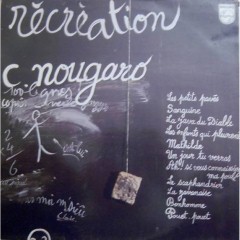 récréation
PHILIPS
c. nougaro
100 lignes
2
4
6
Les petits pavés
Sanguine
La Java du Diable
Les enfants qui pleurent
Mathilde
Un jour tu verras
Ah! si vous connaissiez ma poule
Le scaphandrier
Bonhomme
Pouet pouet